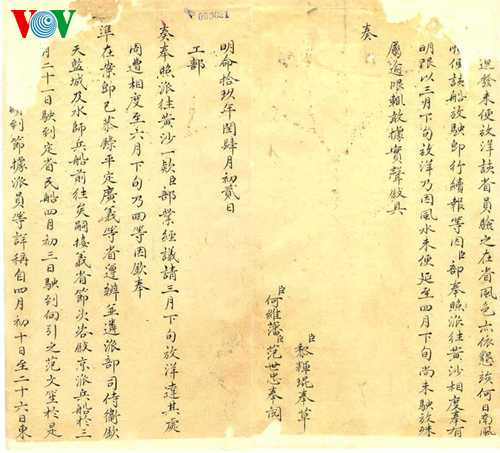 VOV
000021
迅發未便放洋該省員驗之在省風色亦依懇該何日南風
順但該船放駛即行續報等因臣部奉照派往黃沙相度奉有
明限以三月下旬放洋乃因風水未便延至四月下旬尚未駛放殊
屬逾限輒敢據實聲敘具
奏
臣黎輝琨奉草
臣何維藩臣范世忠奉閱
明命拾玖年閏肆月初貳日
工部
奏奉照派往黃沙一款臣部業經議請三月下旬放洋達其處
周遭相度至六月下旬乃回等因欽奉
準在案即已恭錄平定廣義等省遵辦並遴派部司侍衛欽
天監城及水師兵船前往矣嗣接義省節次咨敘京派兵船於三
月二十一日駛到定省民船四月初三日駛到向引之范文生於是
到節據派員等詳稱自四月初十日至二十六日東